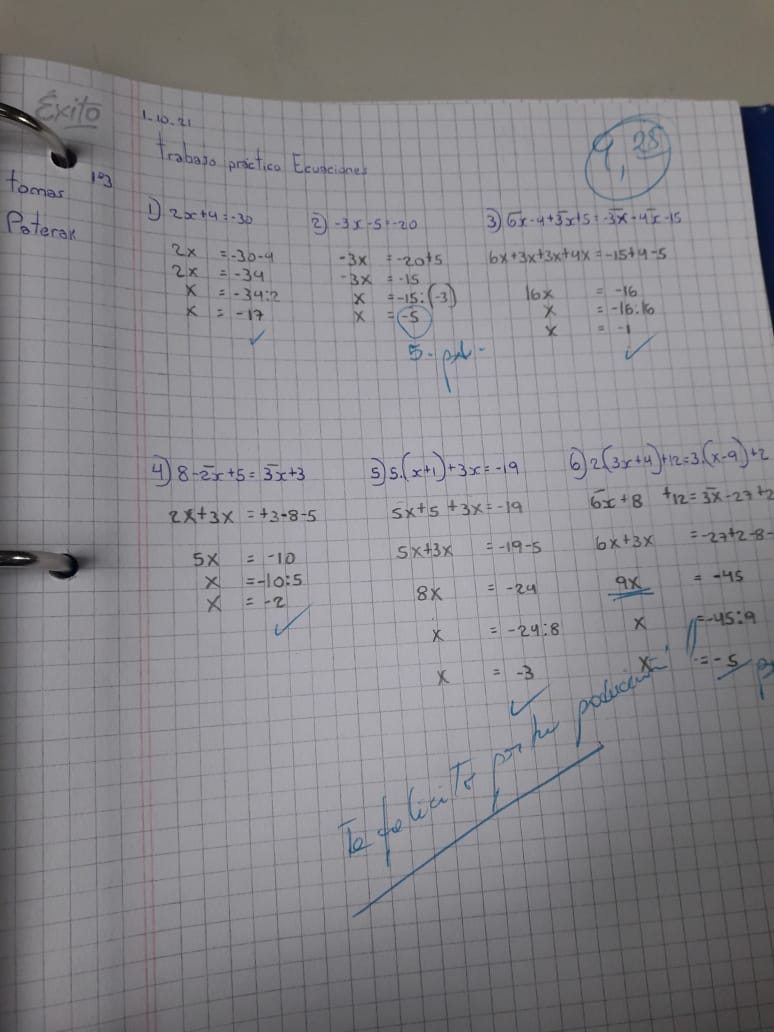 Éxito
1.10.21
9,25
Trabajo práctico Ecuaciones
tomas 1º3
Poterak
1) 2x+4=-30
2x = -30-4
2x = -34
x = -34:2
x = -17
2) -3x-5=-20
-3x = -20+5
-3x = -15
x = -15:(-3)
x = -5
5.
3) 6x-4+3x+5=-3x-4x-15
6x+3x+3x+4x=-15+4-5
16x = -16
x = -16:16
x = -1
4) 8-2x+5=3x+3
2x+3x = +3-8-5
5x = -10
x = -10:5
x = -2
5) 5.(x+1)+3x=-19
5x+5+3x=-19
5x+3x = -19-5
8x = -24
x = -24:8
x = -3
6) 2(3x+4)+12=3.(x-9)+2
6x+8 +12=3x-27+2
6x+3x = -27+2-8-
9x = -45
x = -45:9
x = -5
Te felicito